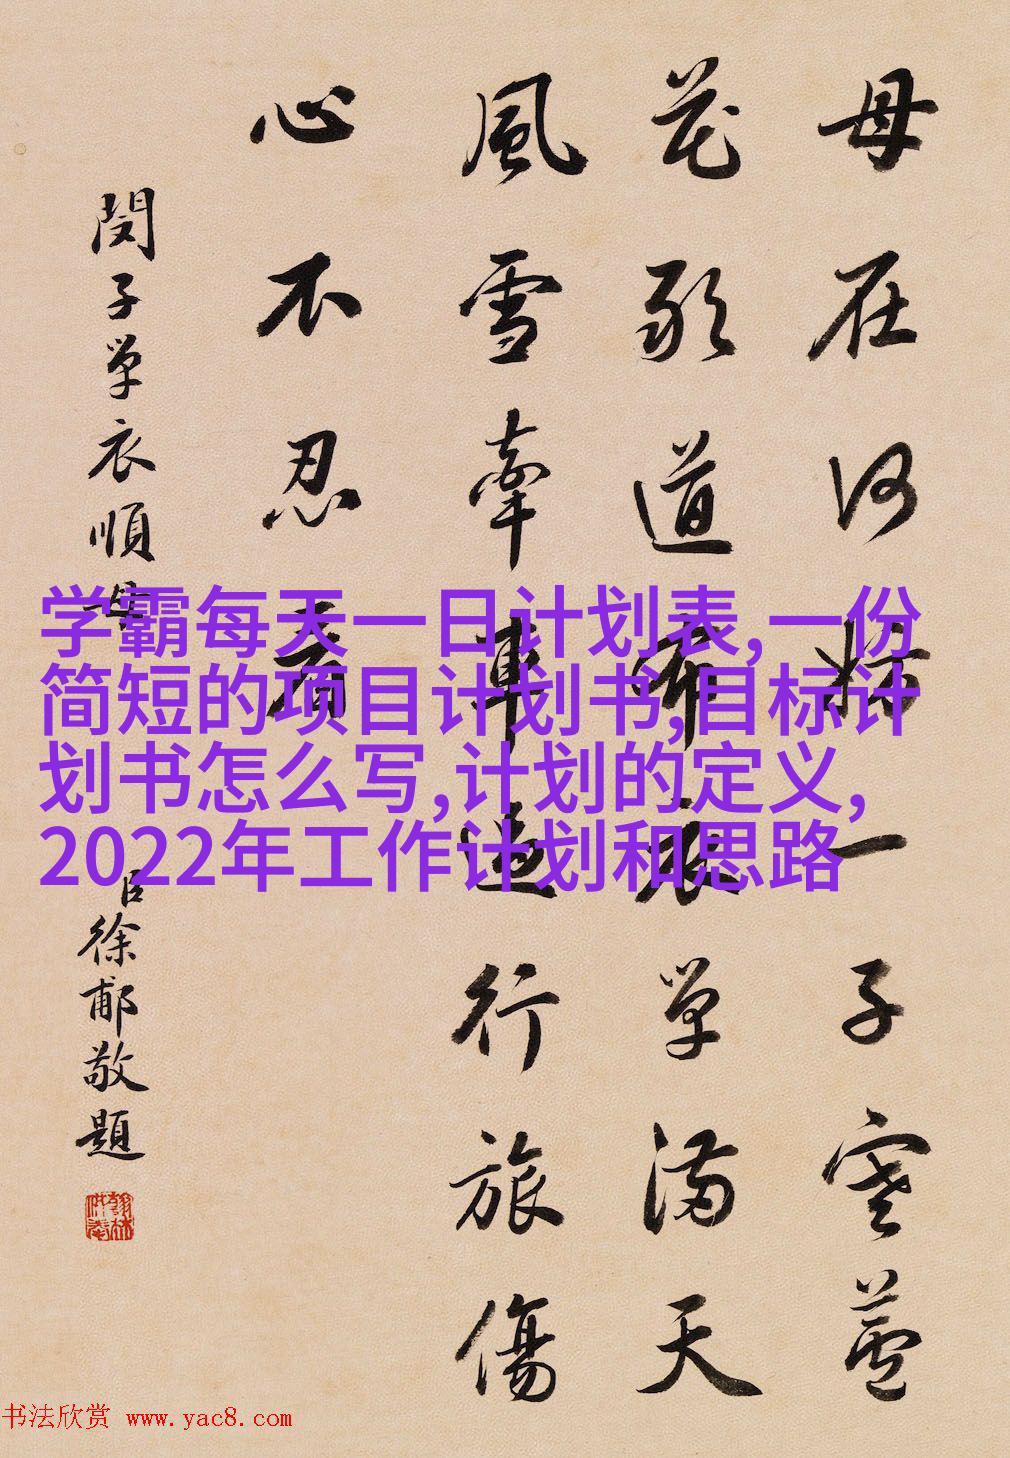 母在何妨一子寒蘆
花敢道布衣單滿天
風雪牽車邊行旅傷
心不忍看
閔子單衣順母
臣徐郙敬題
学霸每天一日计划表,一份
简短的项目计划书,目标计
划书怎么写,计划的定义,
2022年工作计划和思路
书法欣赏 www.yac8.com